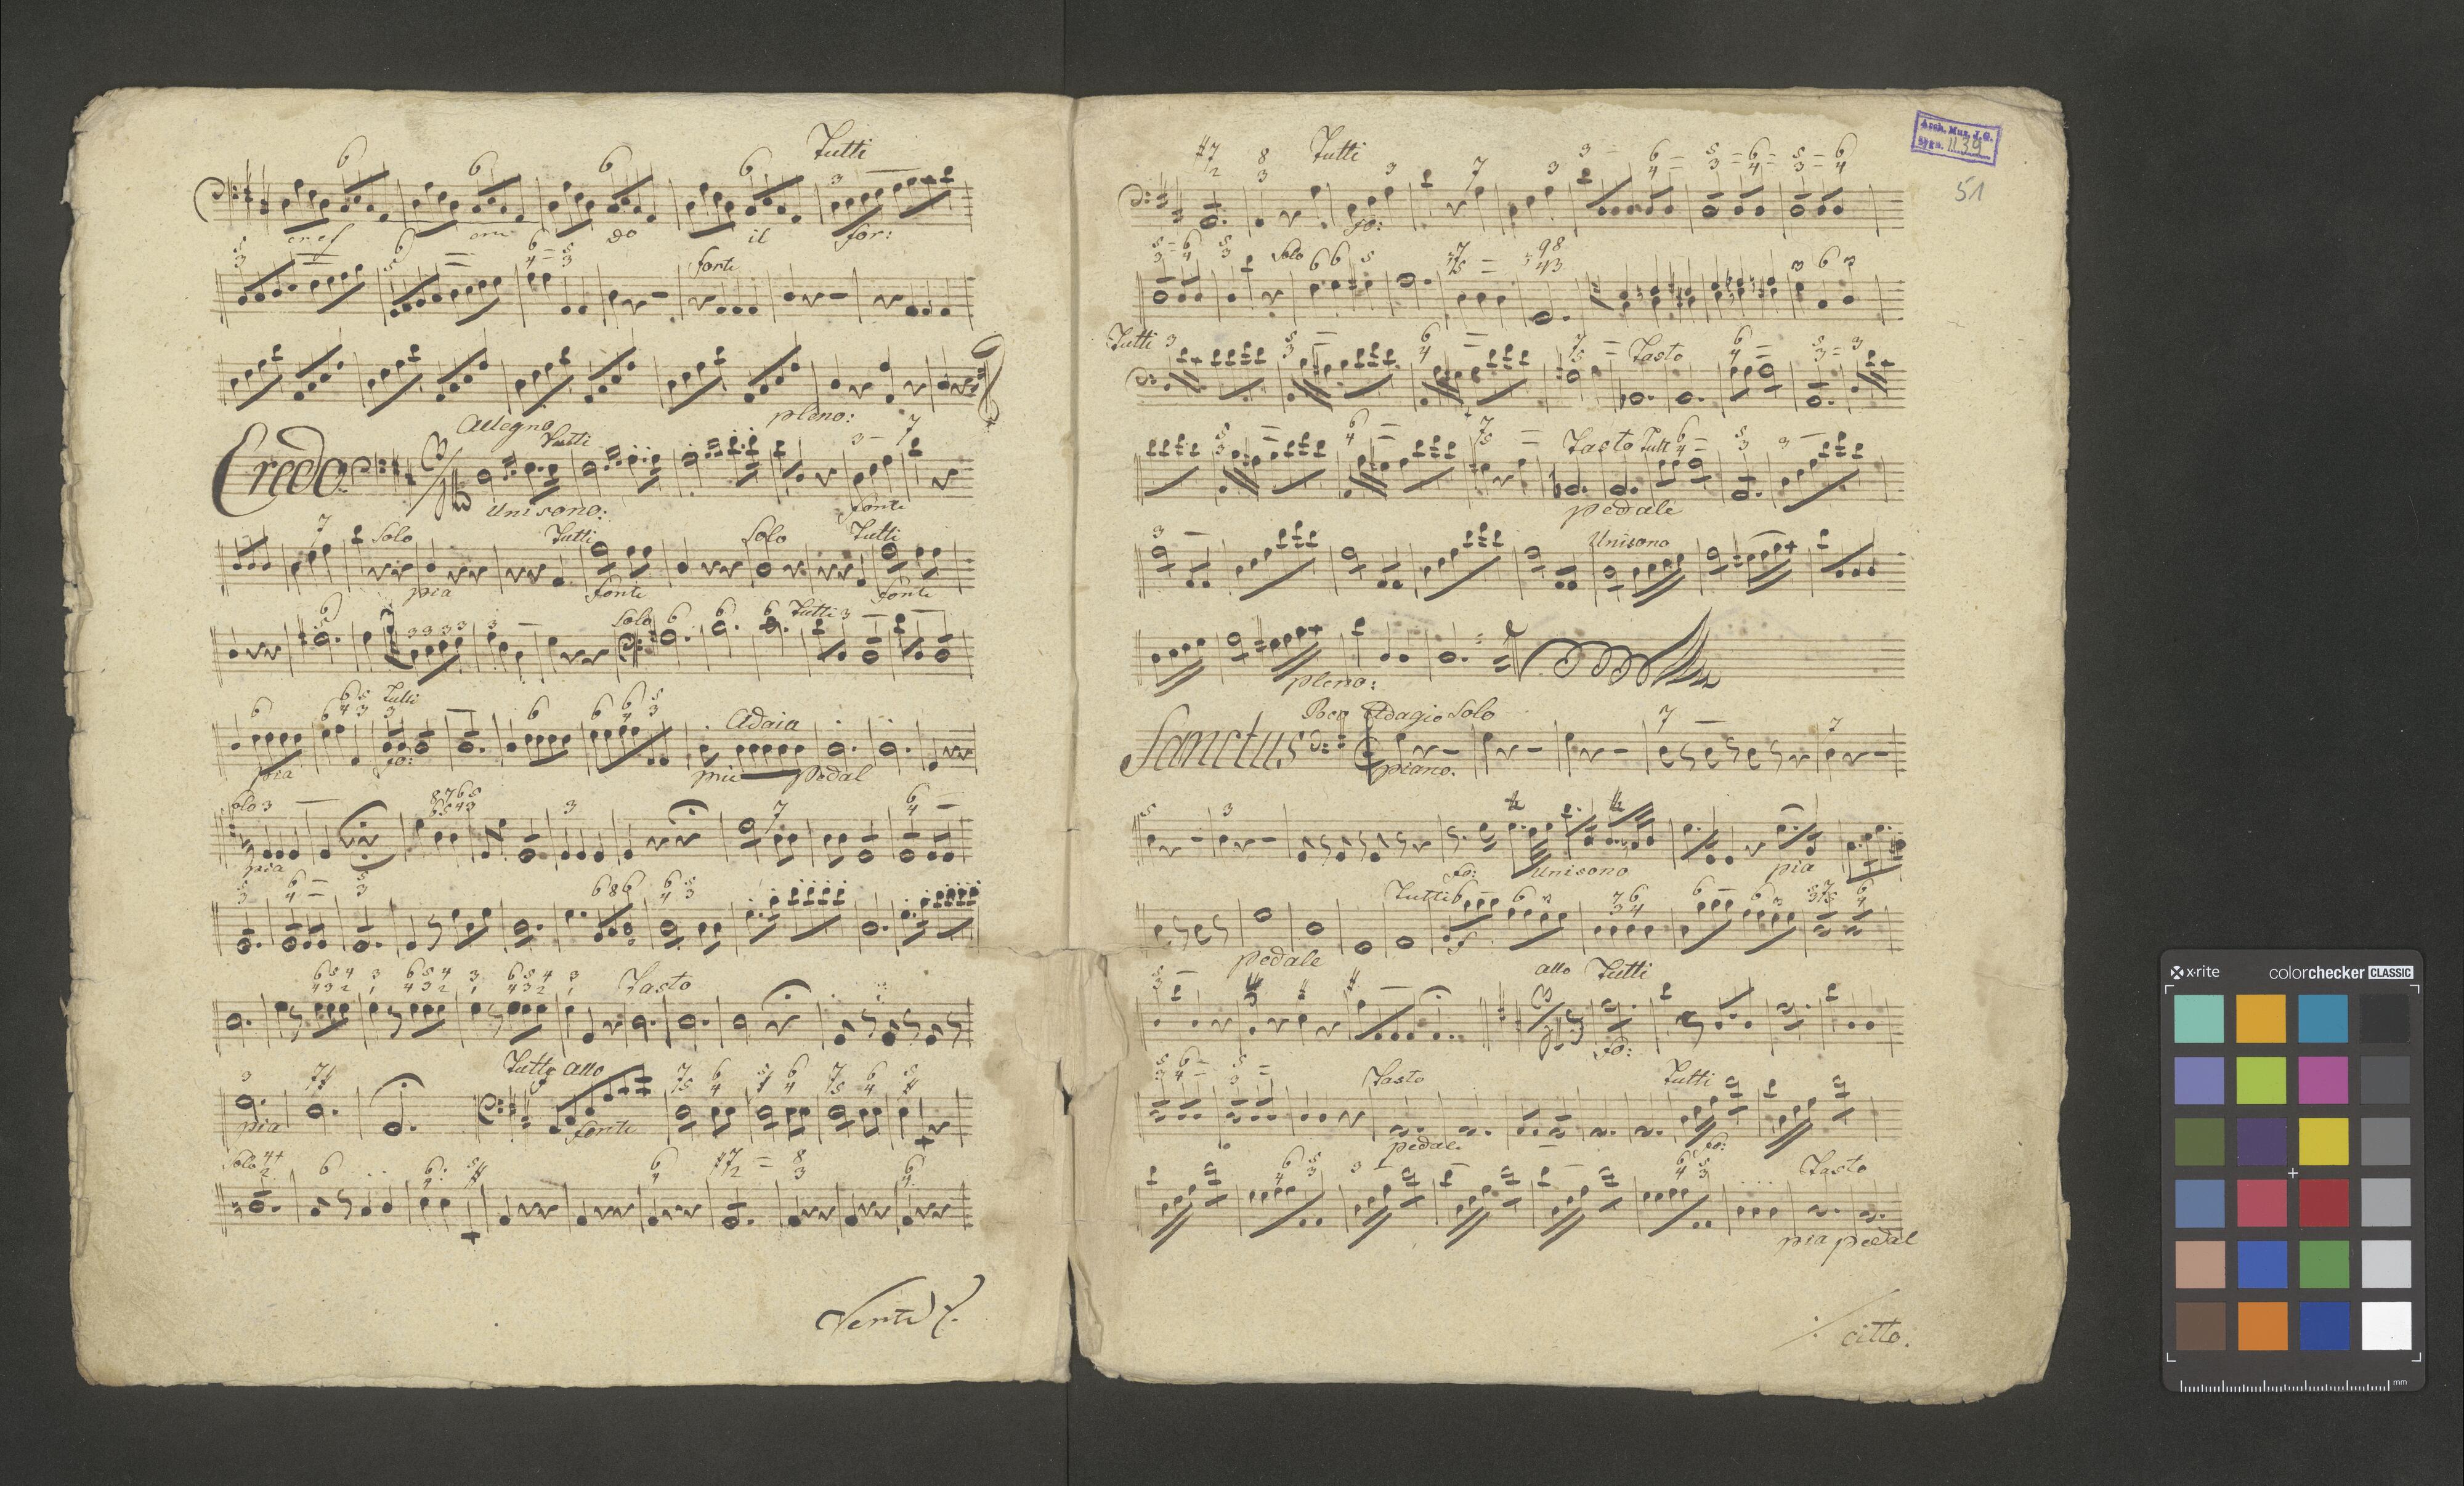 Tutti
cresc en do il for:
forte
pleno:
Credo. Allegro Tutti
Unisono: forte
Solo Tutti Solo Tutti
pia forte forte
Solo Tutti
Tutti Adaia
pia fo: pia Pedal
Solo
pia
Tasto
Tutti allo
pia forte
Solo
Verte
Arch. Muz. J. G.
sygn. 1139
51
Tutti
fo:
Solo
Tutti Tasto
Tasto Tutti
pedale
Unisono
pleno:
Sanctus Adagio Solo
piano.
fo: Unisono pia
Tutti
pedale f
allo Tutti
fo:
Tasto Tutti
pedal. fo:
Tasto
pia pedal
citto.
x-rite colorchecker CLASSIC
mm